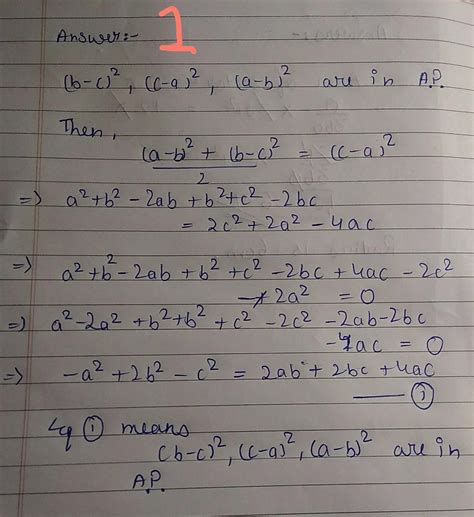 Answer:- 1
(b-c)², (c-a)², (a-b)² are in A.P.
Then,
(a-b)² + (b-c)² / 2 = (c-a)²
=> a²+b²-2ab+b²+c²-2bc
= 2c²+2a²-4ac
=> a²+b²-2ab+b²+c²-2bc+4ac-2c²
-2a² = 0
=> a²-2a²+b²+b²+c²-2c²-2ab-2bc
-4ac = 0
=> -a²+2b²-c² = 2ab+2bc+4ac
—①
Eq ① means
(b-c)², (c-a)², (a-b)² are in
A.P.